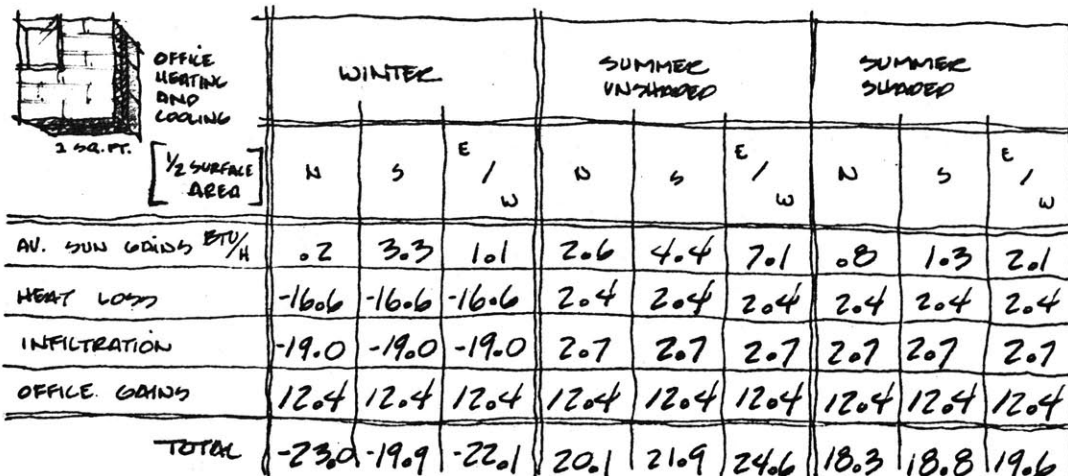 OFFICE
HEATING
AND
COOLING
1 SQ. FT.
[1/2 SURFACE
AREA]
WINTER
SUMMER
UNSHADED
SUMMER
SHADED
N S E/W N S E/W N S E/W
AV. SUN GAINS BTU/H .2 3.3 1.1 2.6 4.4 7.1 .8 1.3 2.1
HEAT LOSS -16.6 -16.6 -16.6 2.4 2.4 2.4 2.4 2.4 2.4
INFILTRATION -19.0 -19.0 -19.0 2.7 2.7 2.7 2.7 2.7 2.7
OFFICE GAINS 12.4 12.4 12.4 12.4 12.4 12.4 12.4 12.4 12.4
TOTAL -23.0 -19.9 -22.1 20.1 21.9 24.6 18.3 18.8 19.6